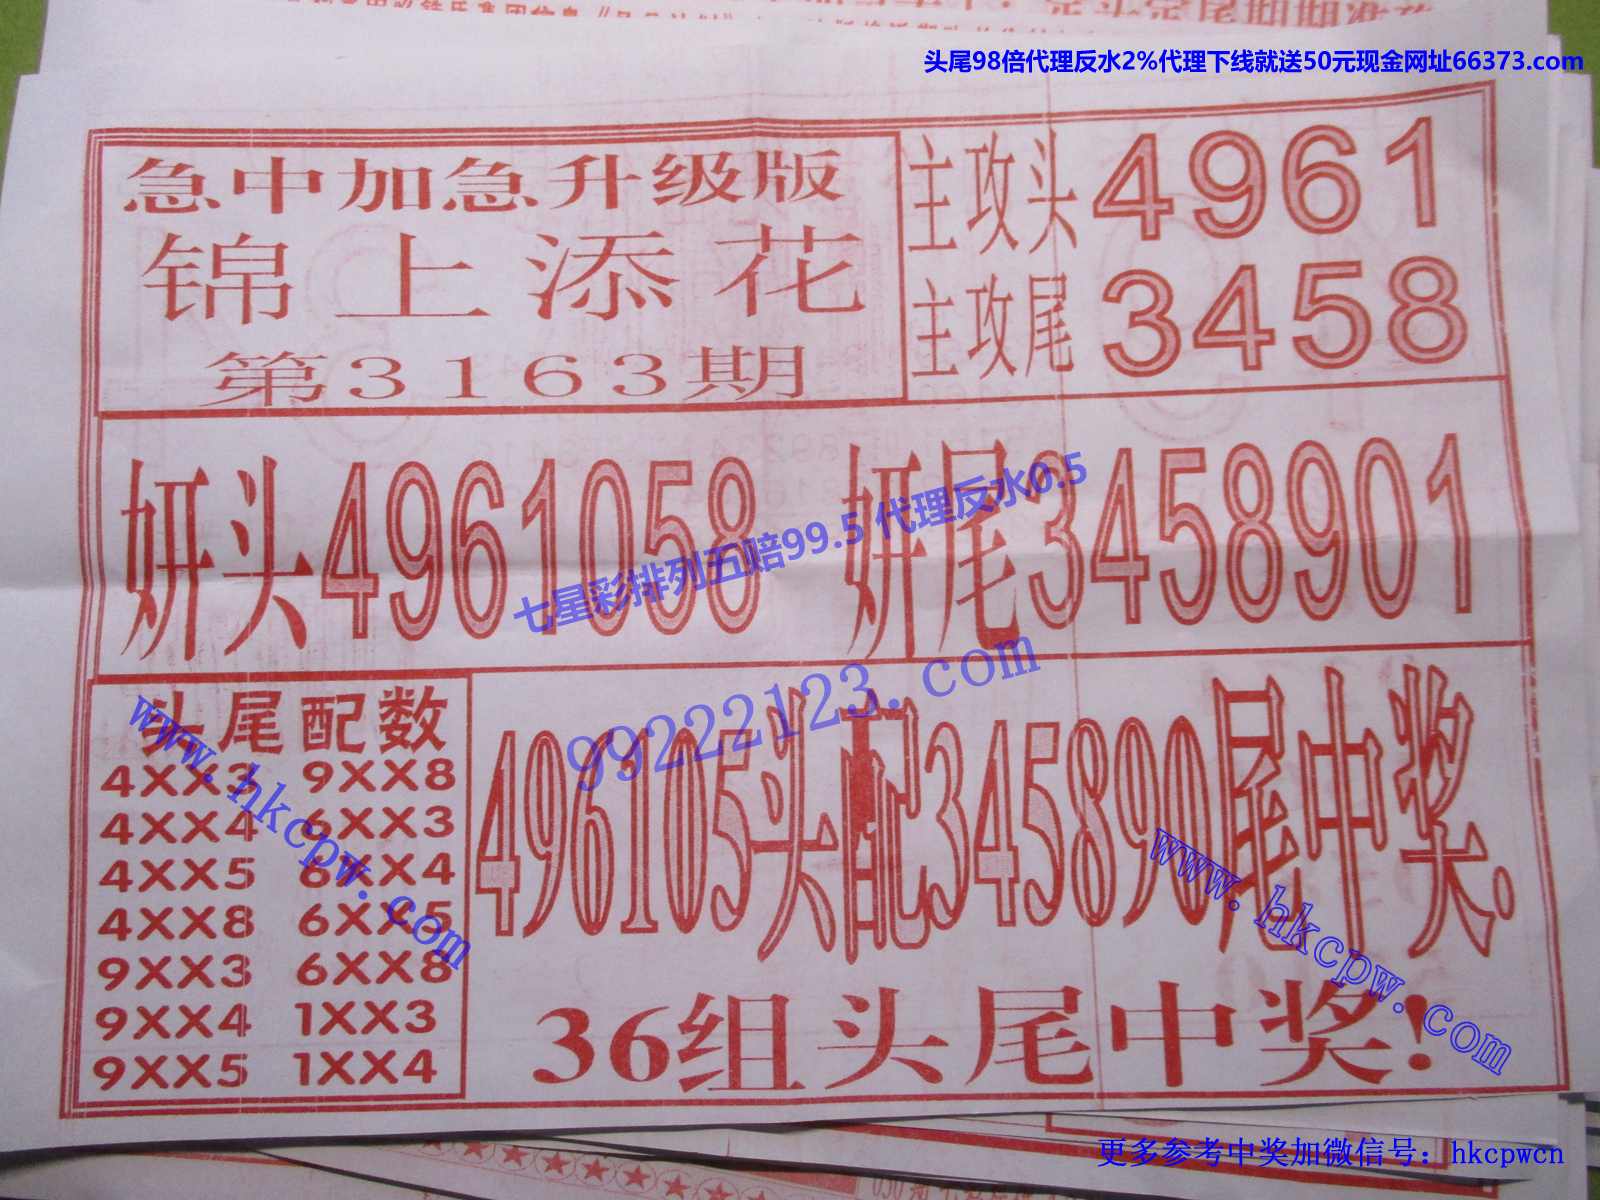 头尾98倍代理反水2%代理下线就送50元现金网址66373.com
急中加急升级版
锦上添花
第3163期
主攻头4961
主攻尾3458
妍头4961058 妍尾3458901
七星彩排列五赔99.5 代理反水0.5
99222123.com
头尾配数
4XX3 9XX8
4XX4 6XX3
4XX5 6XX4
4XX8 6XX5
9XX3 6XX8
9XX4 1XX3
9XX5 1XX4
www.hkcpw.com
496105头配345890尾中奖.
36组头尾中奖!
www.hkcpw.com
更多参考中奖加微信号：hkcpwcn